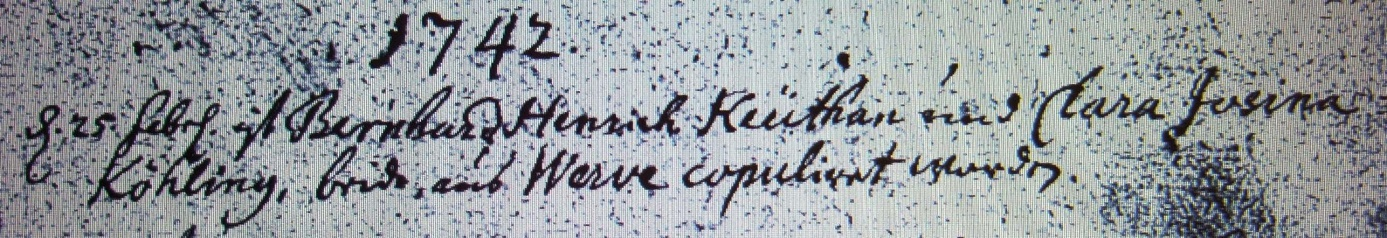 1742.
d. 25. Febr. ist Bernhard Henrich Keüthan und Clara
Köhling, beide aus Werve copuliret worden.